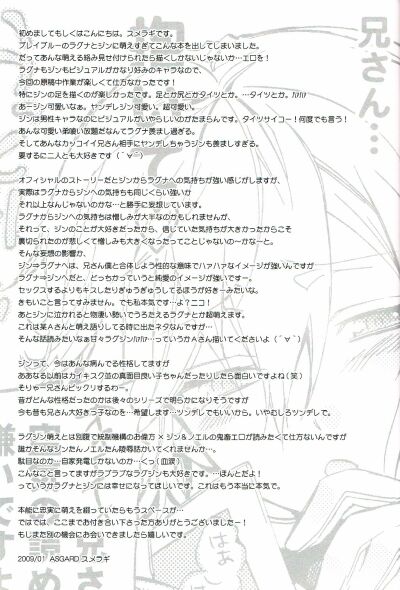 兄さん…
初めましてもしくはこんにちは。スメラギです。
ブレイブルーのラグナとジンに萌えすぎてこんな本を出してしまいました。
だってあんな萌える絡み見せ付けられたら描くしかないじゃないか…エロを！
ラグナもジンもビジュアルがかなり好みのキャラなので、
今回の原稿中作業が楽しくて仕方なかったです！
特にジンの足を描くのが楽しかったです。足とか尻とかタイツとか。…タイツとか。ﾊｧﾊｧ
あージン可愛いなぁ。ヤンデレジン可愛い。超可愛い。
ジンは男性キャラなのにビジュアルがいやらしいのがたまらんです。タイツサイコー！何度でも言う！
あんな可愛い弟喰い放題だなんてラグナ羨まし過ぎる。
そしてあんなカッコイイ兄さん相手にヤンデレちゃうジンも羨ましすぎる。
要するに二人とも大好きです（´▽｀）
オフィシャルのストーリーだとジンからラグナへの気持ちが強い感じがしますが、
実際はラグナからジンへの気持ちも同じくらい強いか
それ以上なんじゃないのかな…と勝手に妄想しています。
ラグナからジンへの気持ちは憎しみが大半なのかもしれませんが、
それって、ジンのことが大好きだったから、信じていた気持ちが大きかったからこそ
裏切られたのが悲しくて憎しみも大きくなったってことじゃないのーかなーと。
そんな妄想の影響か、
ジン⇒ラグナへは、兄さん僕と合体しよう性的な意味でハァハァなイメージが強いんですが
ラグナ⇒ジンへだと、どっちかっていうと純愛のイメージですー。
セックスするよりもキスしたりぎゅうぎゅうしてるほうが好きーみたいな。
きもいこと言ってすみません。でも私本気です…よ？ニコ！
あとジンに泣かれると物凄い勢いでうろたえるラグナとか超萌えます。
これは某Aさんと萌え語りしてる時に出たネタなんですが…
そんな話読みたいなぁ甘々ラグジンﾊｧﾊｧ…っていうかAさん描いてくださいよ（´▽｀）
ジンって、今はあんな病んでる性格してますが
ああなる以前はカイキスク並の真面目良い子ちゃんだったりしたら面白いですよね（笑）
そりゃー兄さんビックリするわー。
昔がどんな性格だったのかは後々のシリーズで明らかになりそうですが
今も昔も兄さん大好きっ子なのを…希望します…ツンデレでもいいから。いやむしろツンデレで。
ラグジン萌えとは別腹で統制機構のお偉方×ジン＆ノエルの鬼畜エロが読みたくて仕方ないんですが
誰かそんなジンたんノエルたん陵辱話かいてくれませんか…。
駄目なのか…自家発電しかないのか…くっ（血涙）
こんなこと言ってますがラブラブなラグジンも大好きです。…ほんとだよ！
っていうかラグナとジンには幸せになってほしいです。これはもう本当に本気で。
本能に忠実に萌えを綴っていたらもうスペースが…
ではでは、ここまでお付き合い下さった方ありがとうございましたー！
もしまた別の機会にお会いできましたら嬉しいです。
2009/01 ASGARD スメラギ